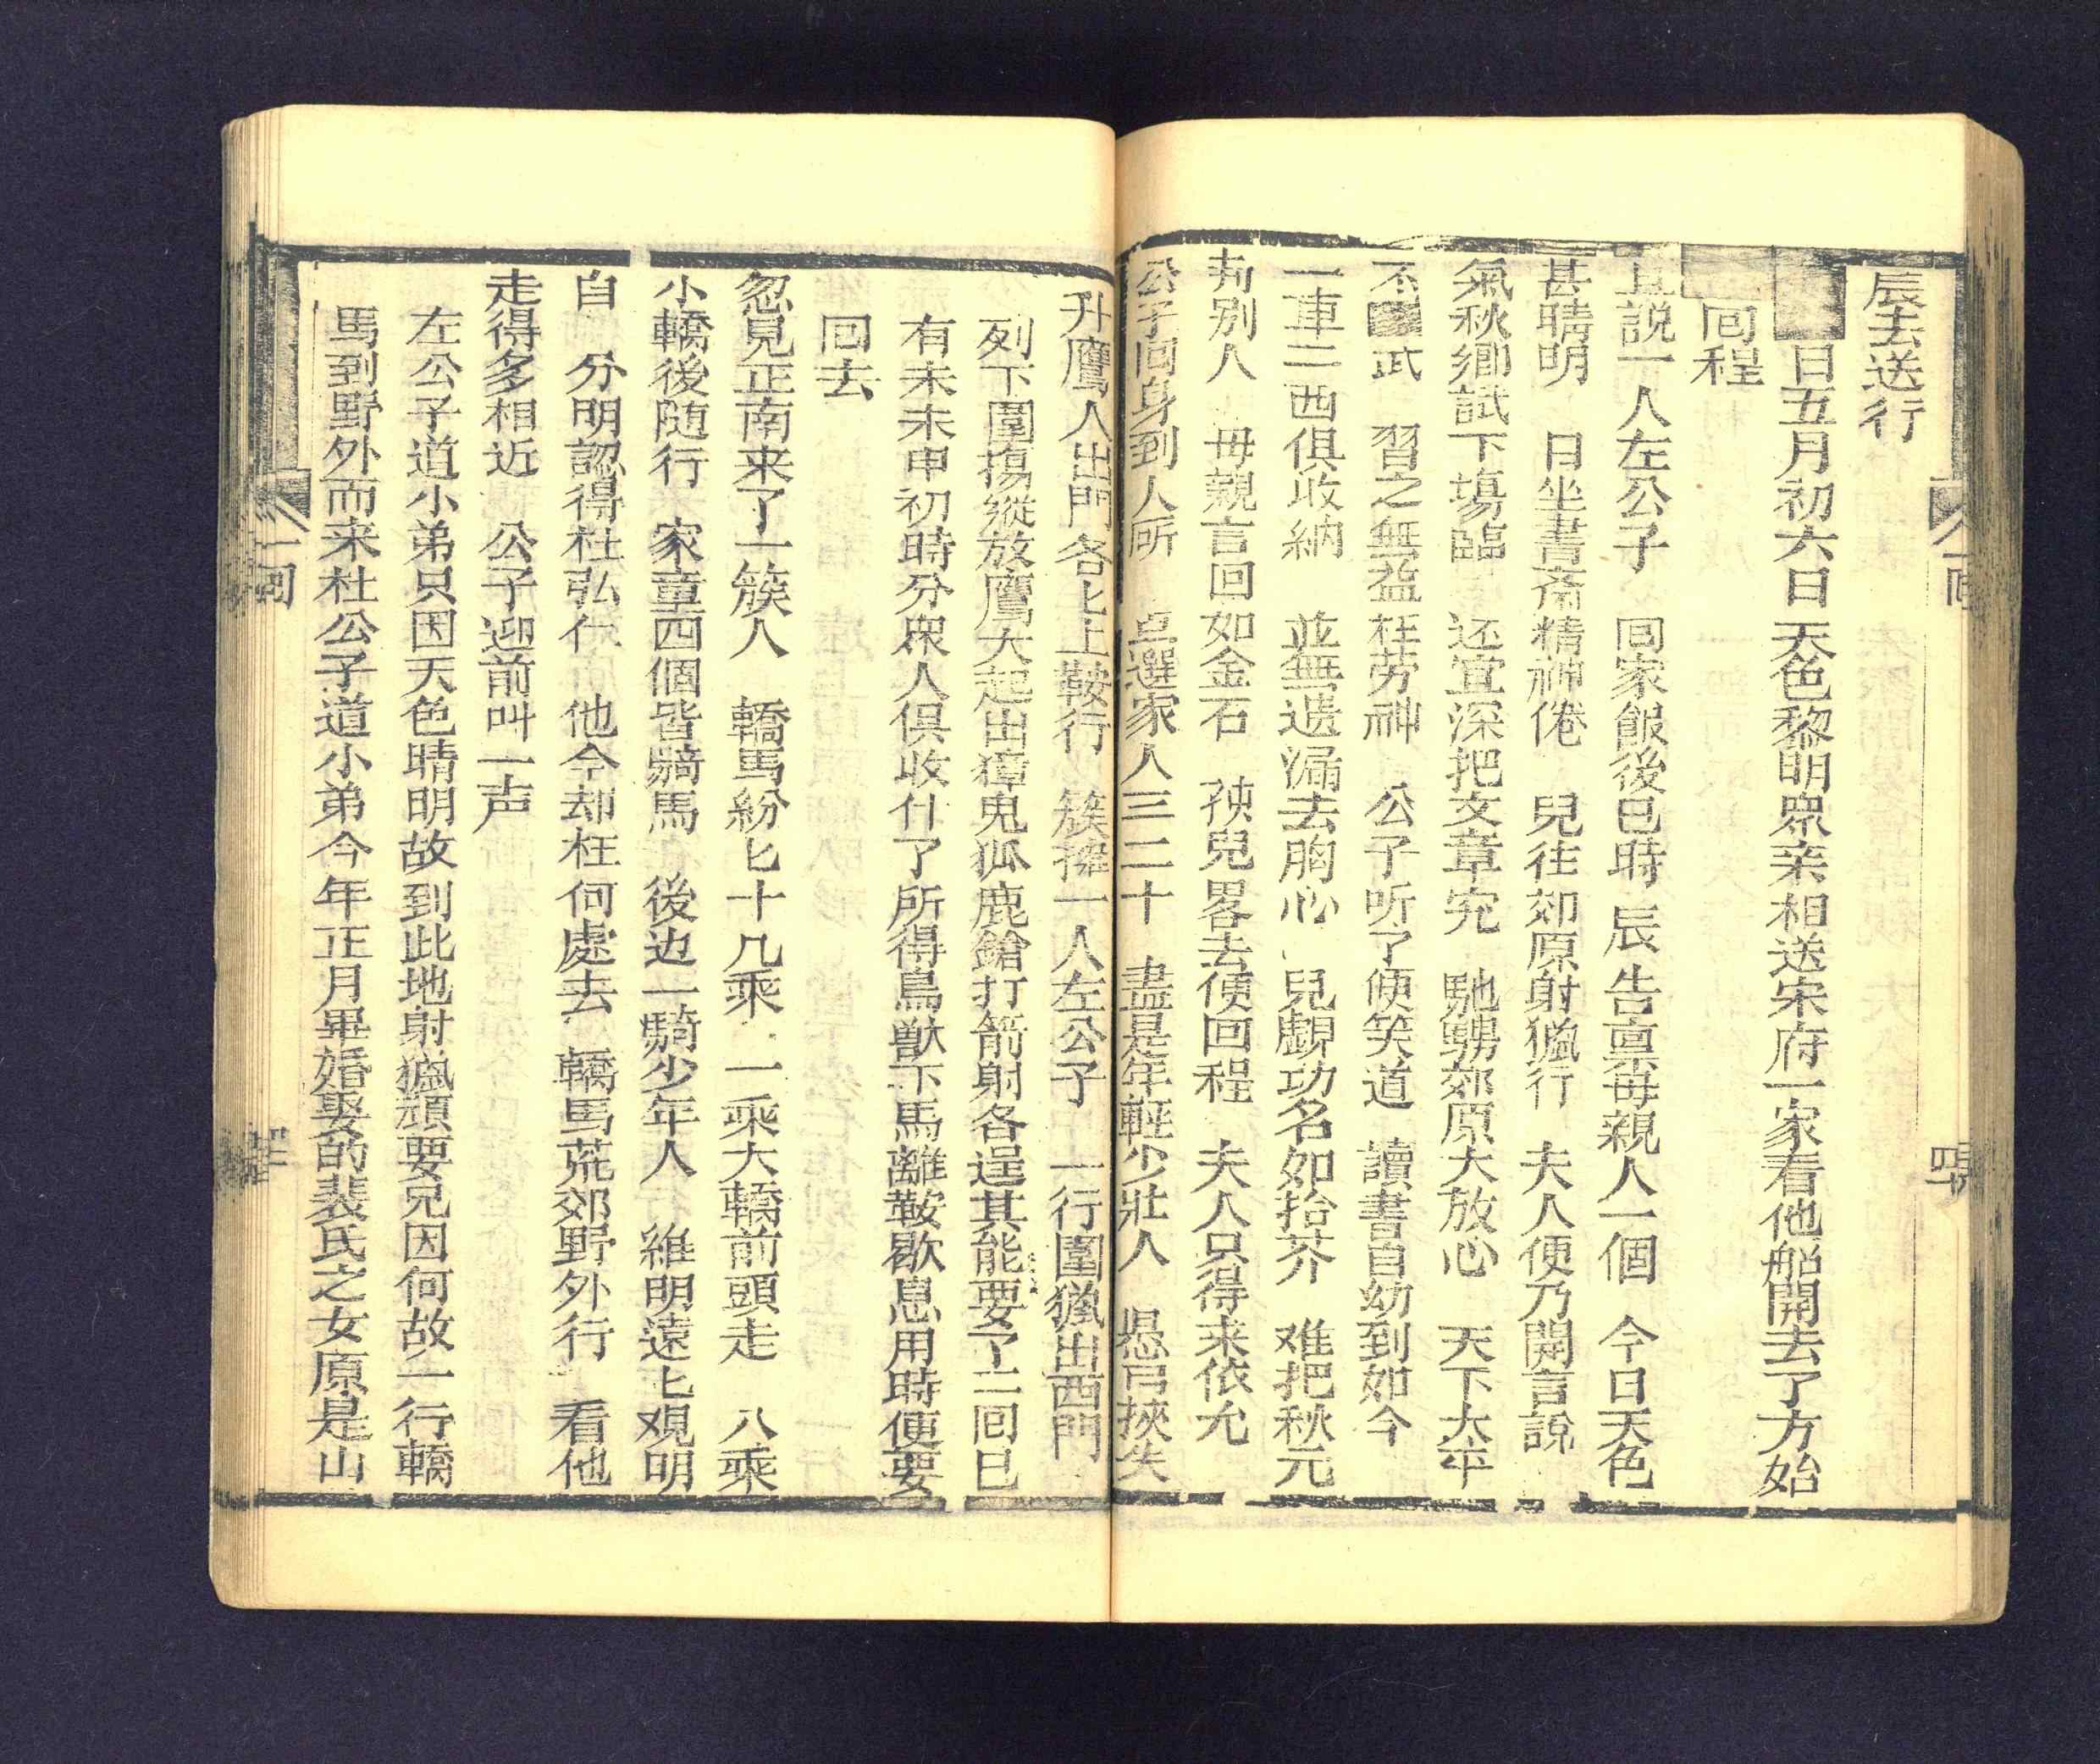 辰去送行
日五月初六日天色黎明眾亲相送宋府一家看他船開去了方始
囘程
且説一人左公子　囘家飯後巳時辰　告禀毋親人一個　今日天色
甚晴明　日坐書斎精神倦　兒往郊原射獵行　夫人便乃開言說
氣秋鄉試下塲臨　还宜深把文章究　馳騁郊原大放心　天下太平
不　武　習之無益枉劳神　公子听了便笑道　讀書自幼到如今
一車二酉俱收納　並無遗漏去胸心　兒覷功名如拾芥　难把秋元
别人　毋親言囘如金石　孩兒畧去便囘程　夫人只得来依允
公子囘身到人所　選家人三二十　盡是年輕少壯人　懸弓挾矢
升鷹人出門各匕上鞍行　簇擁一人左公子　一行圍獵出西門
列下圍塲縱放鷹犬起出獐兎狐鹿鎗打箭射各逞其能要了二囘巳
有未末申初時分衆人俱收什了所得鳥獸下馬離鞍歇息用時便要
囘去
忽見正南来了一簇人　轎馬紛匕十几乘　一乘大轎前頭走　八乘
小轎後随行　家童四個皆騎馬　後边一騎少年人　維明遠匕观明
白　分明認得杜弘仁　他今却枉何處去　轎馬荒郊野外行　看他
走得多相近　公子迎前叫一声
左公子道小弟只因天色晴明故到此地射獵頑要兄因何故一行轎
馬到野外而来杜公子道小弟今年正月畢婚娶的裴氏之女原是山
一囘